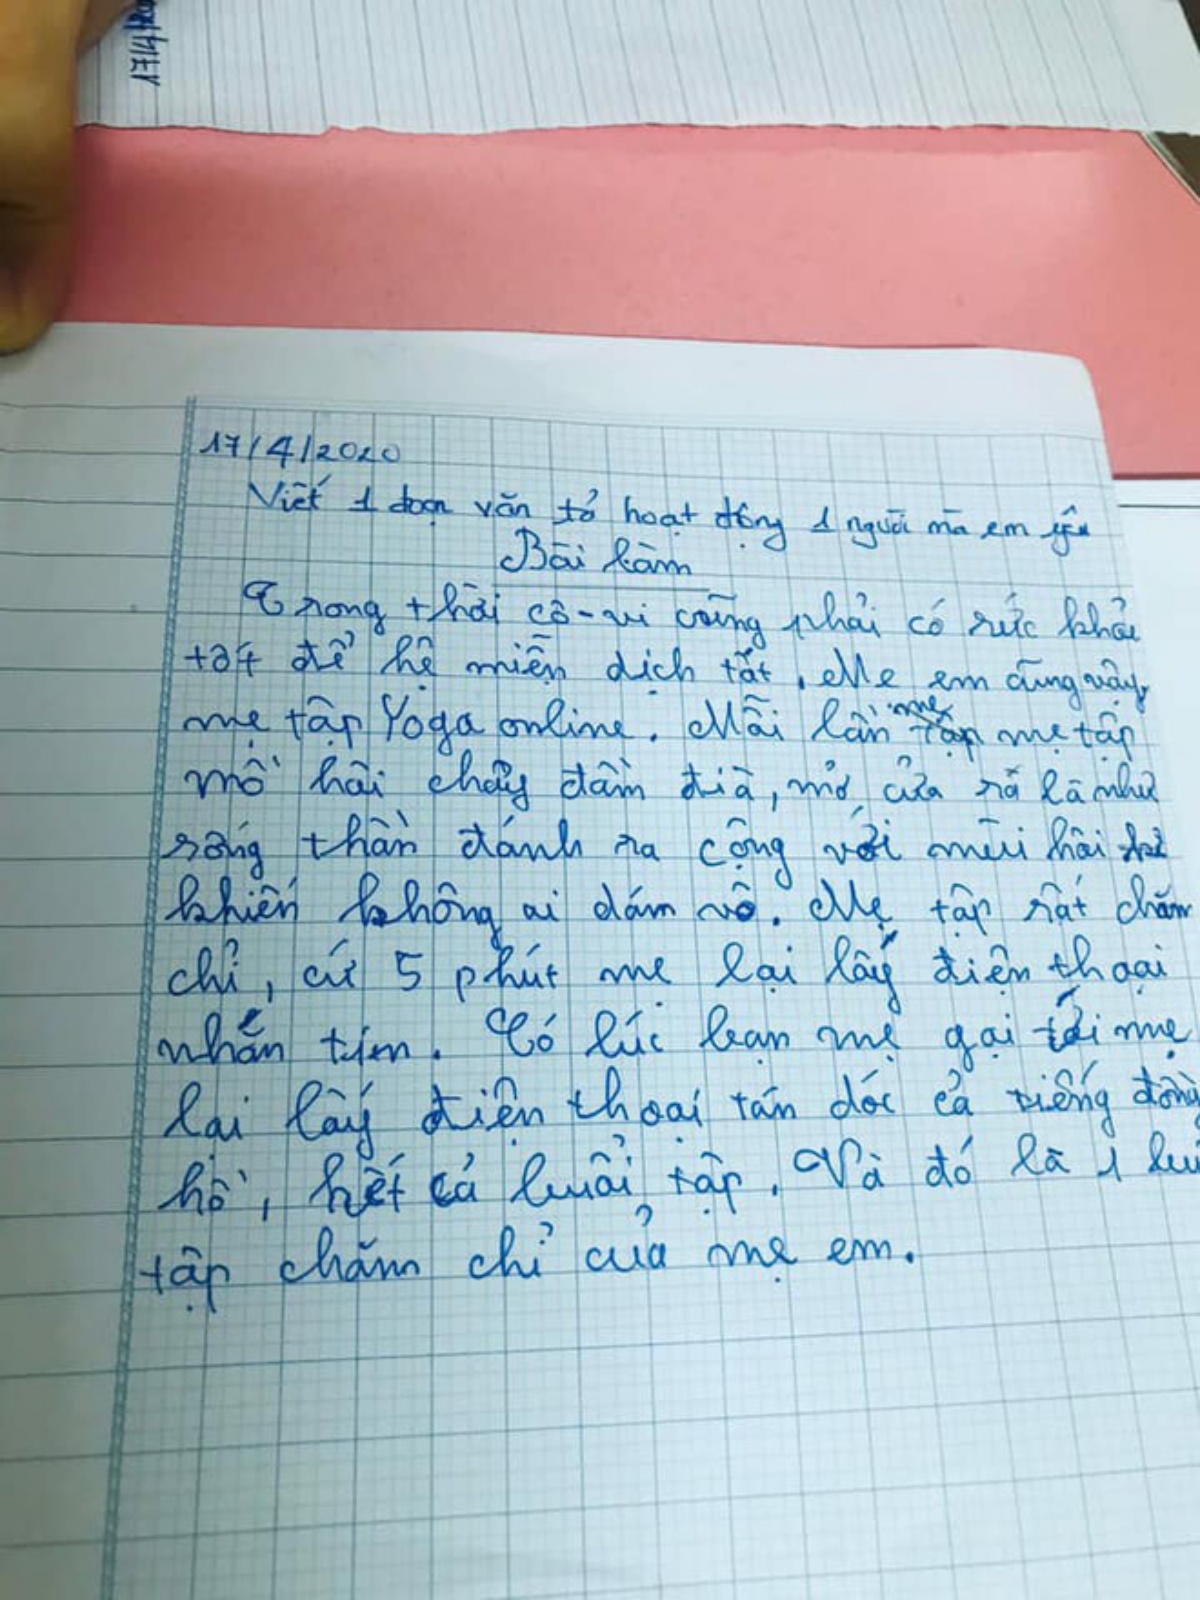 17/4/20
17/4/2020
Viết 1 đoạn văn tả hoạt động 1 người mà em yêu
Bài làm
Trong thời cô-vi cũng phải có sức khỏe
tốt để hệ miễn dịch tốt. Mẹ em cũng vậy,
mẹ tập Yoga online. Mỗi lần mẹ tập mẹ tập
mồ hôi chảy đầm đìa, mở cửa ra là như
sóng thần đánh ra cộng với mùi hôi
khiến không ai dám vô. Mẹ tập rất chăm
chỉ, cứ 5 phút mẹ lại lấy điện thoại
nhắn tin. Có lúc bạn mẹ gọi tới mẹ
lại lấy điện thoại tán dóc cả tiếng đồng
hồ, hết cả buổi tập. Và đó là 1 buổi
tập chăm chỉ của mẹ em.